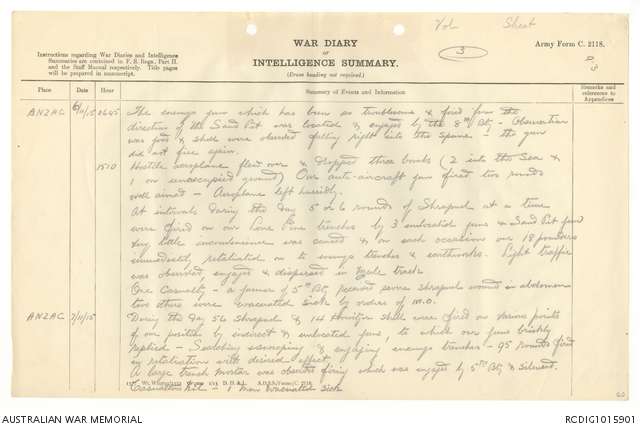 Vol Sheet
3
Army Form C. 2118.
WAR DIARY
or
INTELLIGENCE SUMMARY.
(Erase heading not required.)
Instructions regarding War Diaries and Intelligence
Summaries are contained in F. S. Regs., Part II.
and the Staff Manual respectively. Title pages
will be prepared in manuscript.
Place Date Hour Summary of Events and Information Remarks and
references to
Appendices
ANZAC 6/11/15 0645 The enemys gun which has been so troublesome & fired from the
direction of the Sand Pit was located & engaged by the 8th Bty - Observation
was good & shell were observed falling right into the & the gun
did not fire again.
1510 Hostile aeroplane flew over & dropped three bombs (2 into the Sea &
1 on unoccupied ground) Our anti-aircraft gun fired two rounds
well aimed - Aeroplane left hurriedly.
At intervals during the day 5 or 6 rounds of Shrapnel at a time
were fired on our Lone Pine trenches by 3 unlocated guns & Sand Pit gun
Very little inconvenience was caused & on each occasion our 18 pounders
immediately retaliated on to enemys trenches & earthworks. Light traffic
was observed, engaged & dispersed in track
One Casualty - a farrier of 5th Bty received severe shrapnel wound in abdomen
two others were evacuated sick by orders of M.O.
ANZAC 7/11/15 During the day 56 Shrapnel & 14 Howitzer shell were fired on various points
of our position by indirect & unlocated guns, to which our guns briskly
replied - Searching & engaging enemys trenches - 95 rounds fired
in retaliation with desired effect
A large trench mortar was observed firing which was engaged by 5th Bty & silenced.
Casualties nil - 1 man evacuated sick
AUSTRALIAN WAR MEMORIAL
RCDIG1015901